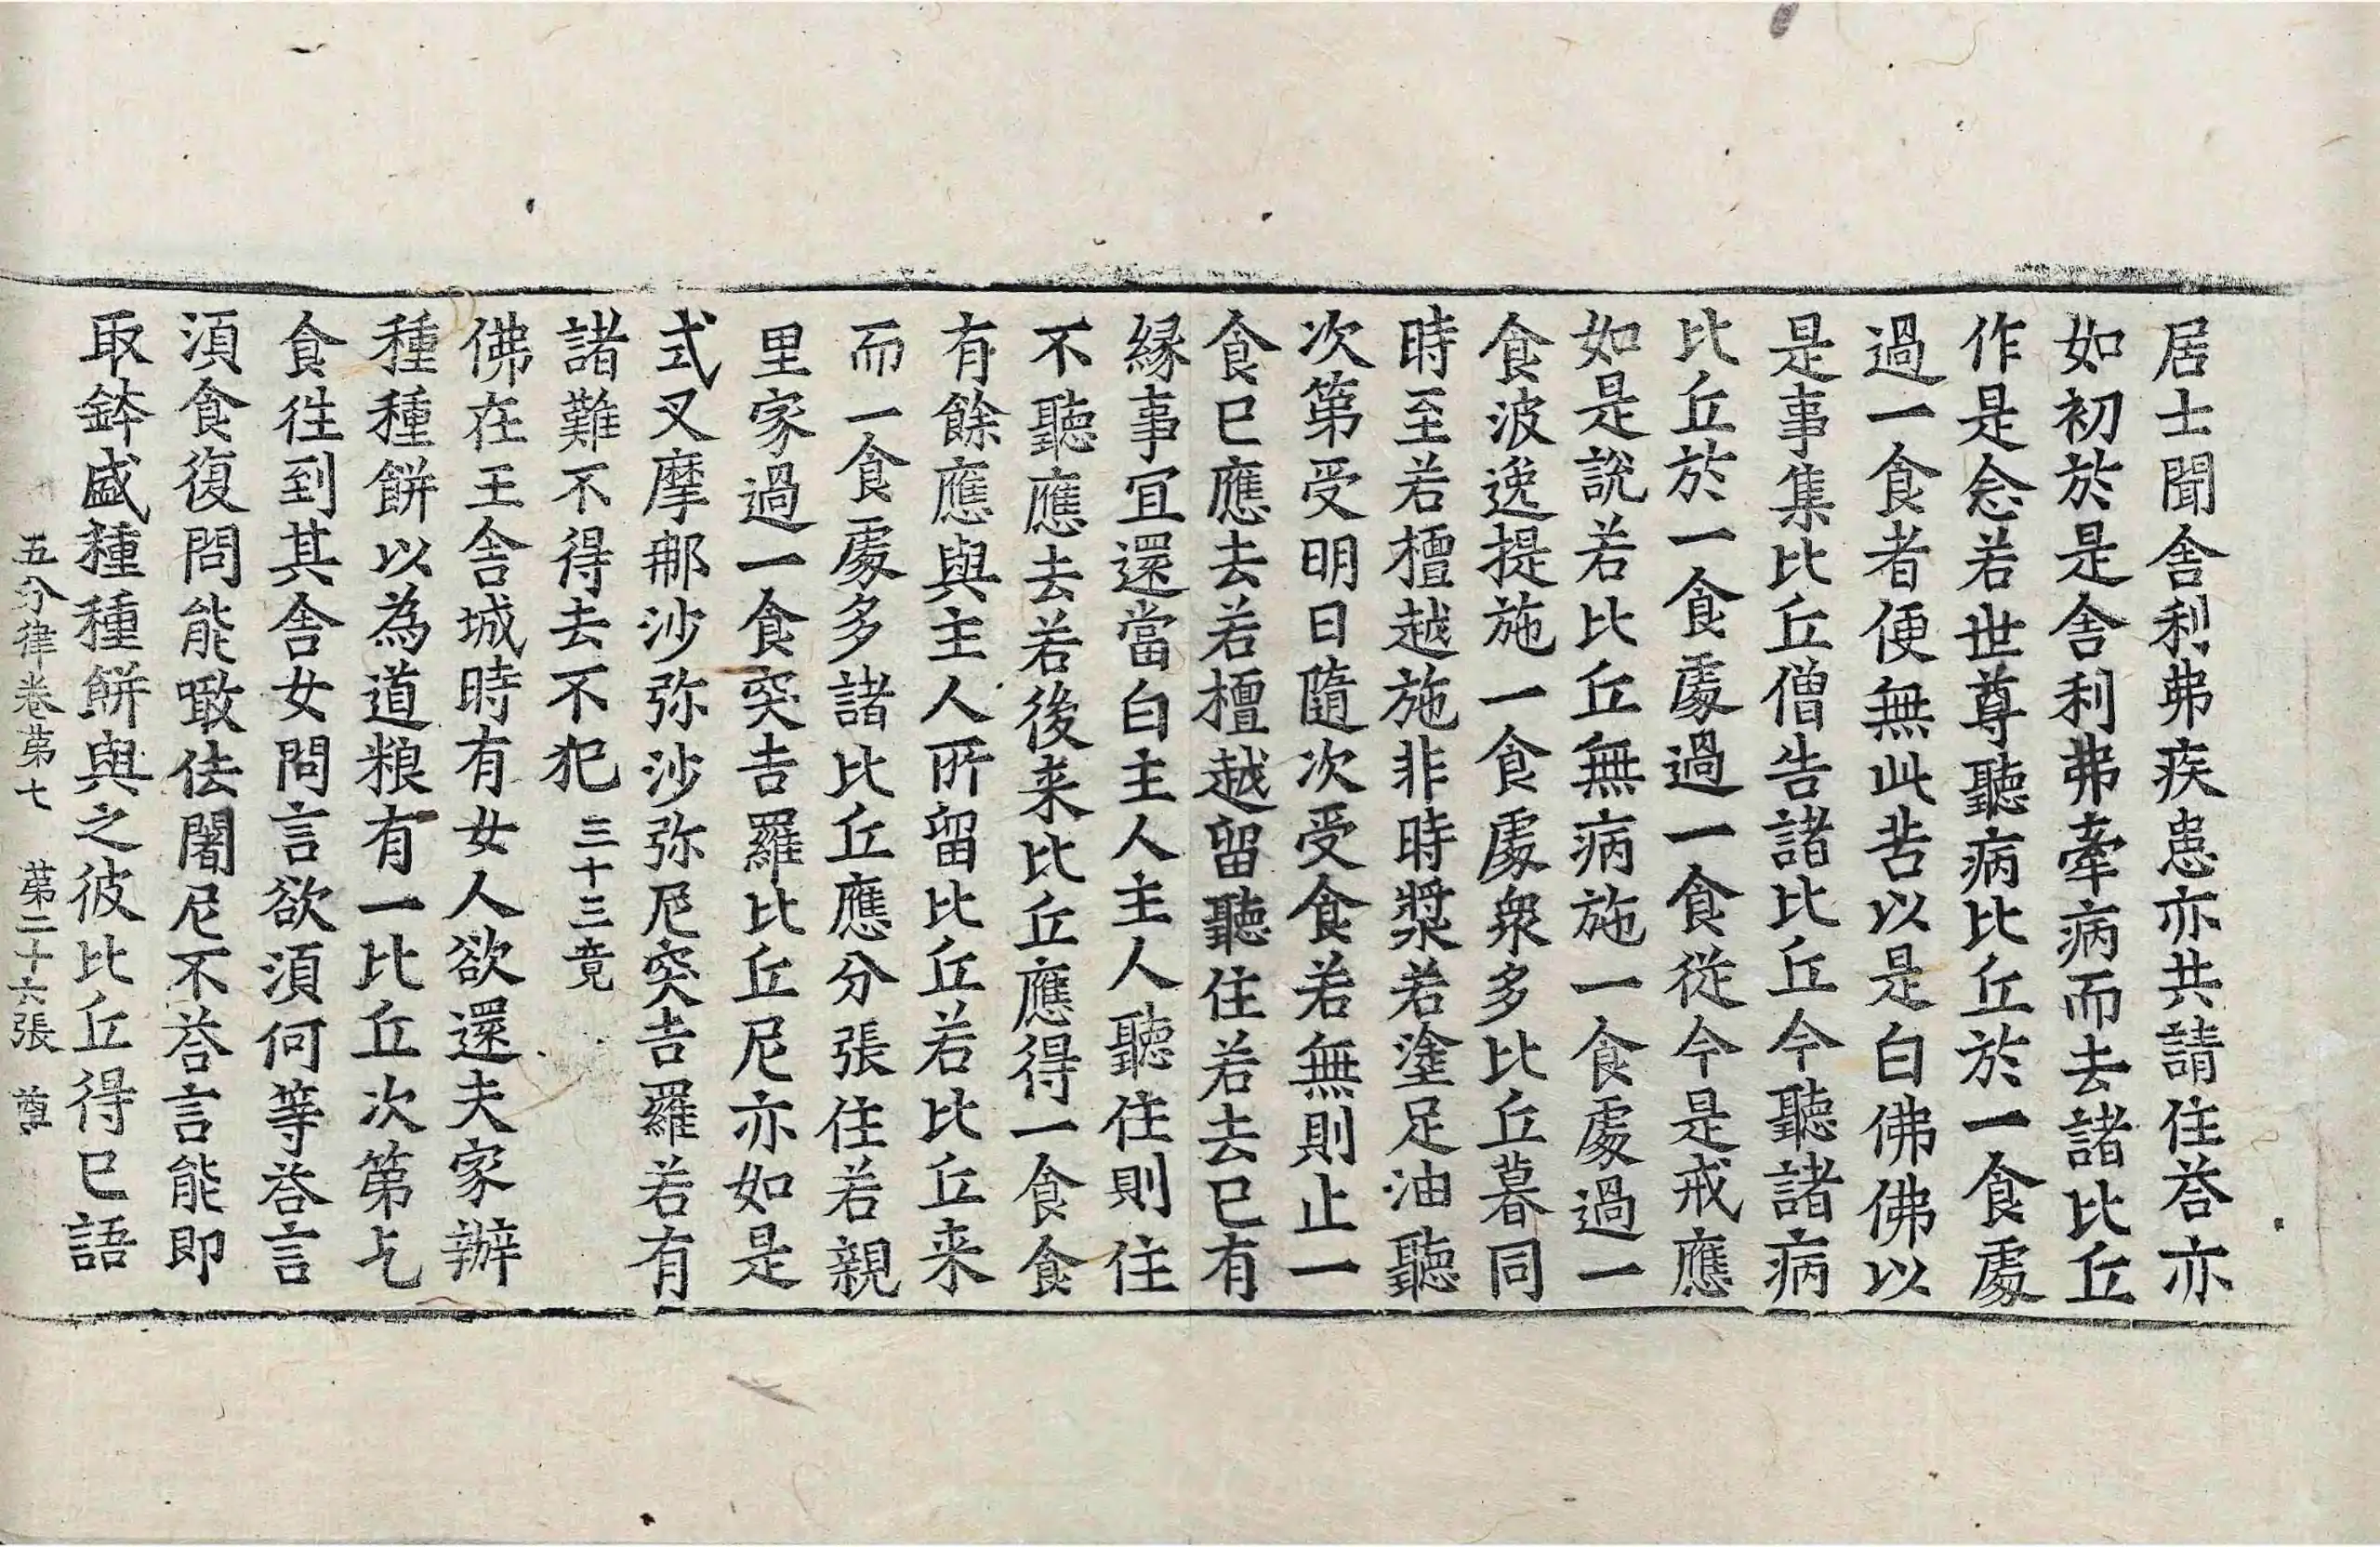 居士聞舍利弗疾患亦共請住荅亦
如初於是舍利弗牽病而去諸比丘
作是念若世尊聽病比丘於一食處
過一食者便無此苦以是白佛佛以
是事集比丘僧告諸比丘今聽諸病
比丘於一食處過一食從今是戒應
如是說若比丘無病施一食處過一
食波逸提施一食處衆多比丘暮同
時至若檀越施非時漿若塗足油聽
次第受明日隨次受食若無則止一
食已應去若檀越留聽住若去已有
緣事宜還當白主人主人聽住則住
不聽應去若後来比丘應得一食食
有餘應與主人所留比丘若比丘来
而一食處多諸比丘應分張住若親
里家過一食突吉羅比丘尼亦如是
式叉摩那沙弥沙弥尼突吉羅若有
諸難不得去不犯 三十三竟
佛在王舍城時有女人欲還夫家辦
種種餅以為道粮有一比丘次第乞
食往到其舍女問言欲須何等荅言
須食復問能噉佉闍尼不荅言能即
取鉢盛種種餅與之彼比丘得已語
五分律卷第七 第二十六張 尊